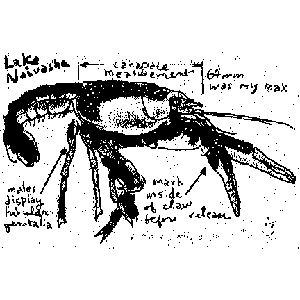 Lake
Naivasha
carapace
measurement
64mm
was my max
males
display
tubular
genitalia
mark
inside
of claw
before release